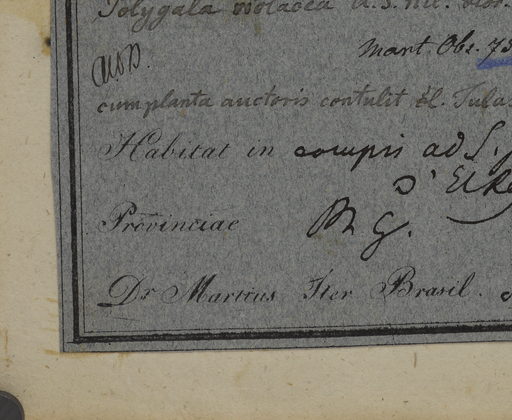 Polygala violacea A. S. Hil.
Mart. Obs. 75
cum planta auctoris contulit Cl. Tulas
Habitat in campis ad S.
D'El Re
Provinciae M G.
Dr Martius Iter Brasil.